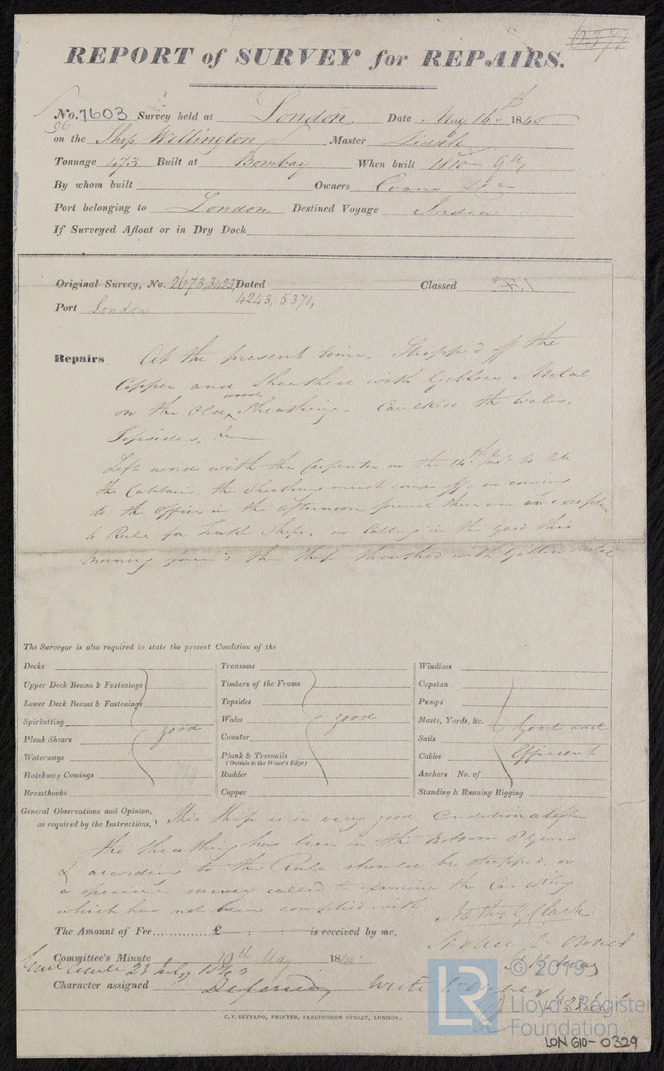 REPORT of SURVEY for REPAIRS.
No. 7603 Survey held at London Date May 16th 1840
on the Ship Wellington Master Liddle
Tonnage 473 Built at Bombay When built
By whom built Owners Evans
Port belonging to London Destined Voyage India
If Surveyed Afloat or in Dry Dock
Original Survey, No. 2673, 3423, Dated Classed
4243, 5371,
Port London
Repairs At the present time. Stripped off the
Copper and Sheathed with Yellow Metal
on the Old wood Sheathing. Caulked the Wales,
Topsides, &c
Left word with the Carpenter on the 14th Inst. to tell
the Captain the Sheathing must come off, on coming
to the Office in the afternoon found there was an exception
to Rule for Teake Ships, on Calling in the yard this
Morning found the Ship Sheathed with Yellow Metal
The Surveyor is also required to state the present Condition of the
Decks Transoms Windlass
Upper Deck Beams & Fastenings Timbers of the Frame Capstan
Lower Deck Beams & Fastenings Topsides Pumps
Spirketting Wales good Masts, Yards, &c. Good and
Plank Shears good Counter Sails Efficient
Waterways Plank & Treenails Cables
(Outside to the Water's Edge)
Hatchway Comings Rudder Anchors No. of
Breasthooks Copper Standing & Running Rigging
General Observations and Opinion, This Ship is in very good Condition
as required by the Instructions,
the Sheathing has been on the Bottom years
& according to the Rule should be stripped, or
a special survey called to examine the Caulking
which has not been complied with
The Amount of Fee £ is received by me,
Nathl. G. Clark
Committee's Minute 19th May 1840
Character assigned Deferred Write Owner
C. F. SEYFANG, PRINTER, FARRINGDON STREET, LONDON.
© 2019
Lloyd's Register
Foundation
LON 610-0329